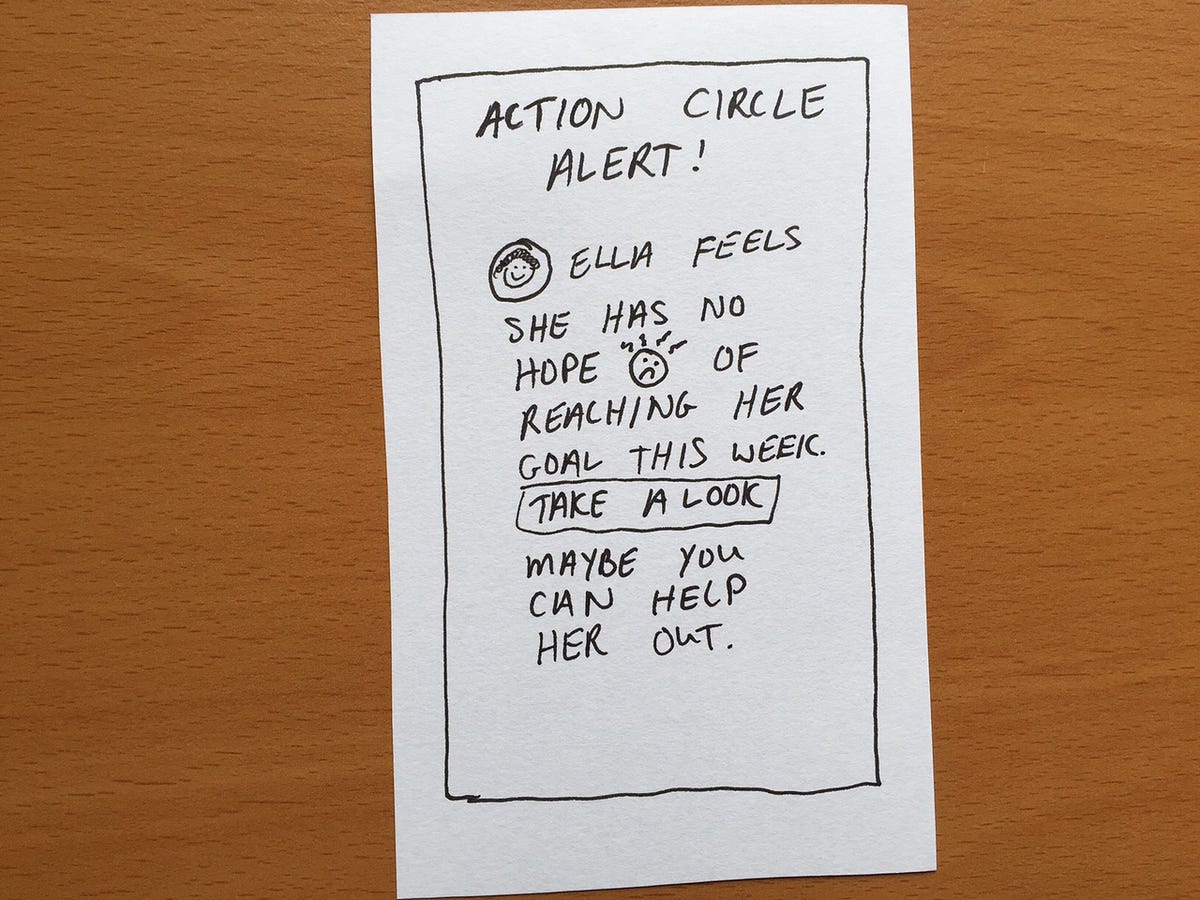 ACTION CIRCLE
ALERT!
ELLA FEELS
SHE HAS NO
HOPE OF
REACHING HER
GOAL THIS WEEK.
TAKE A LOOK
MAYBE YOU
CAN HELP
HER OUT.